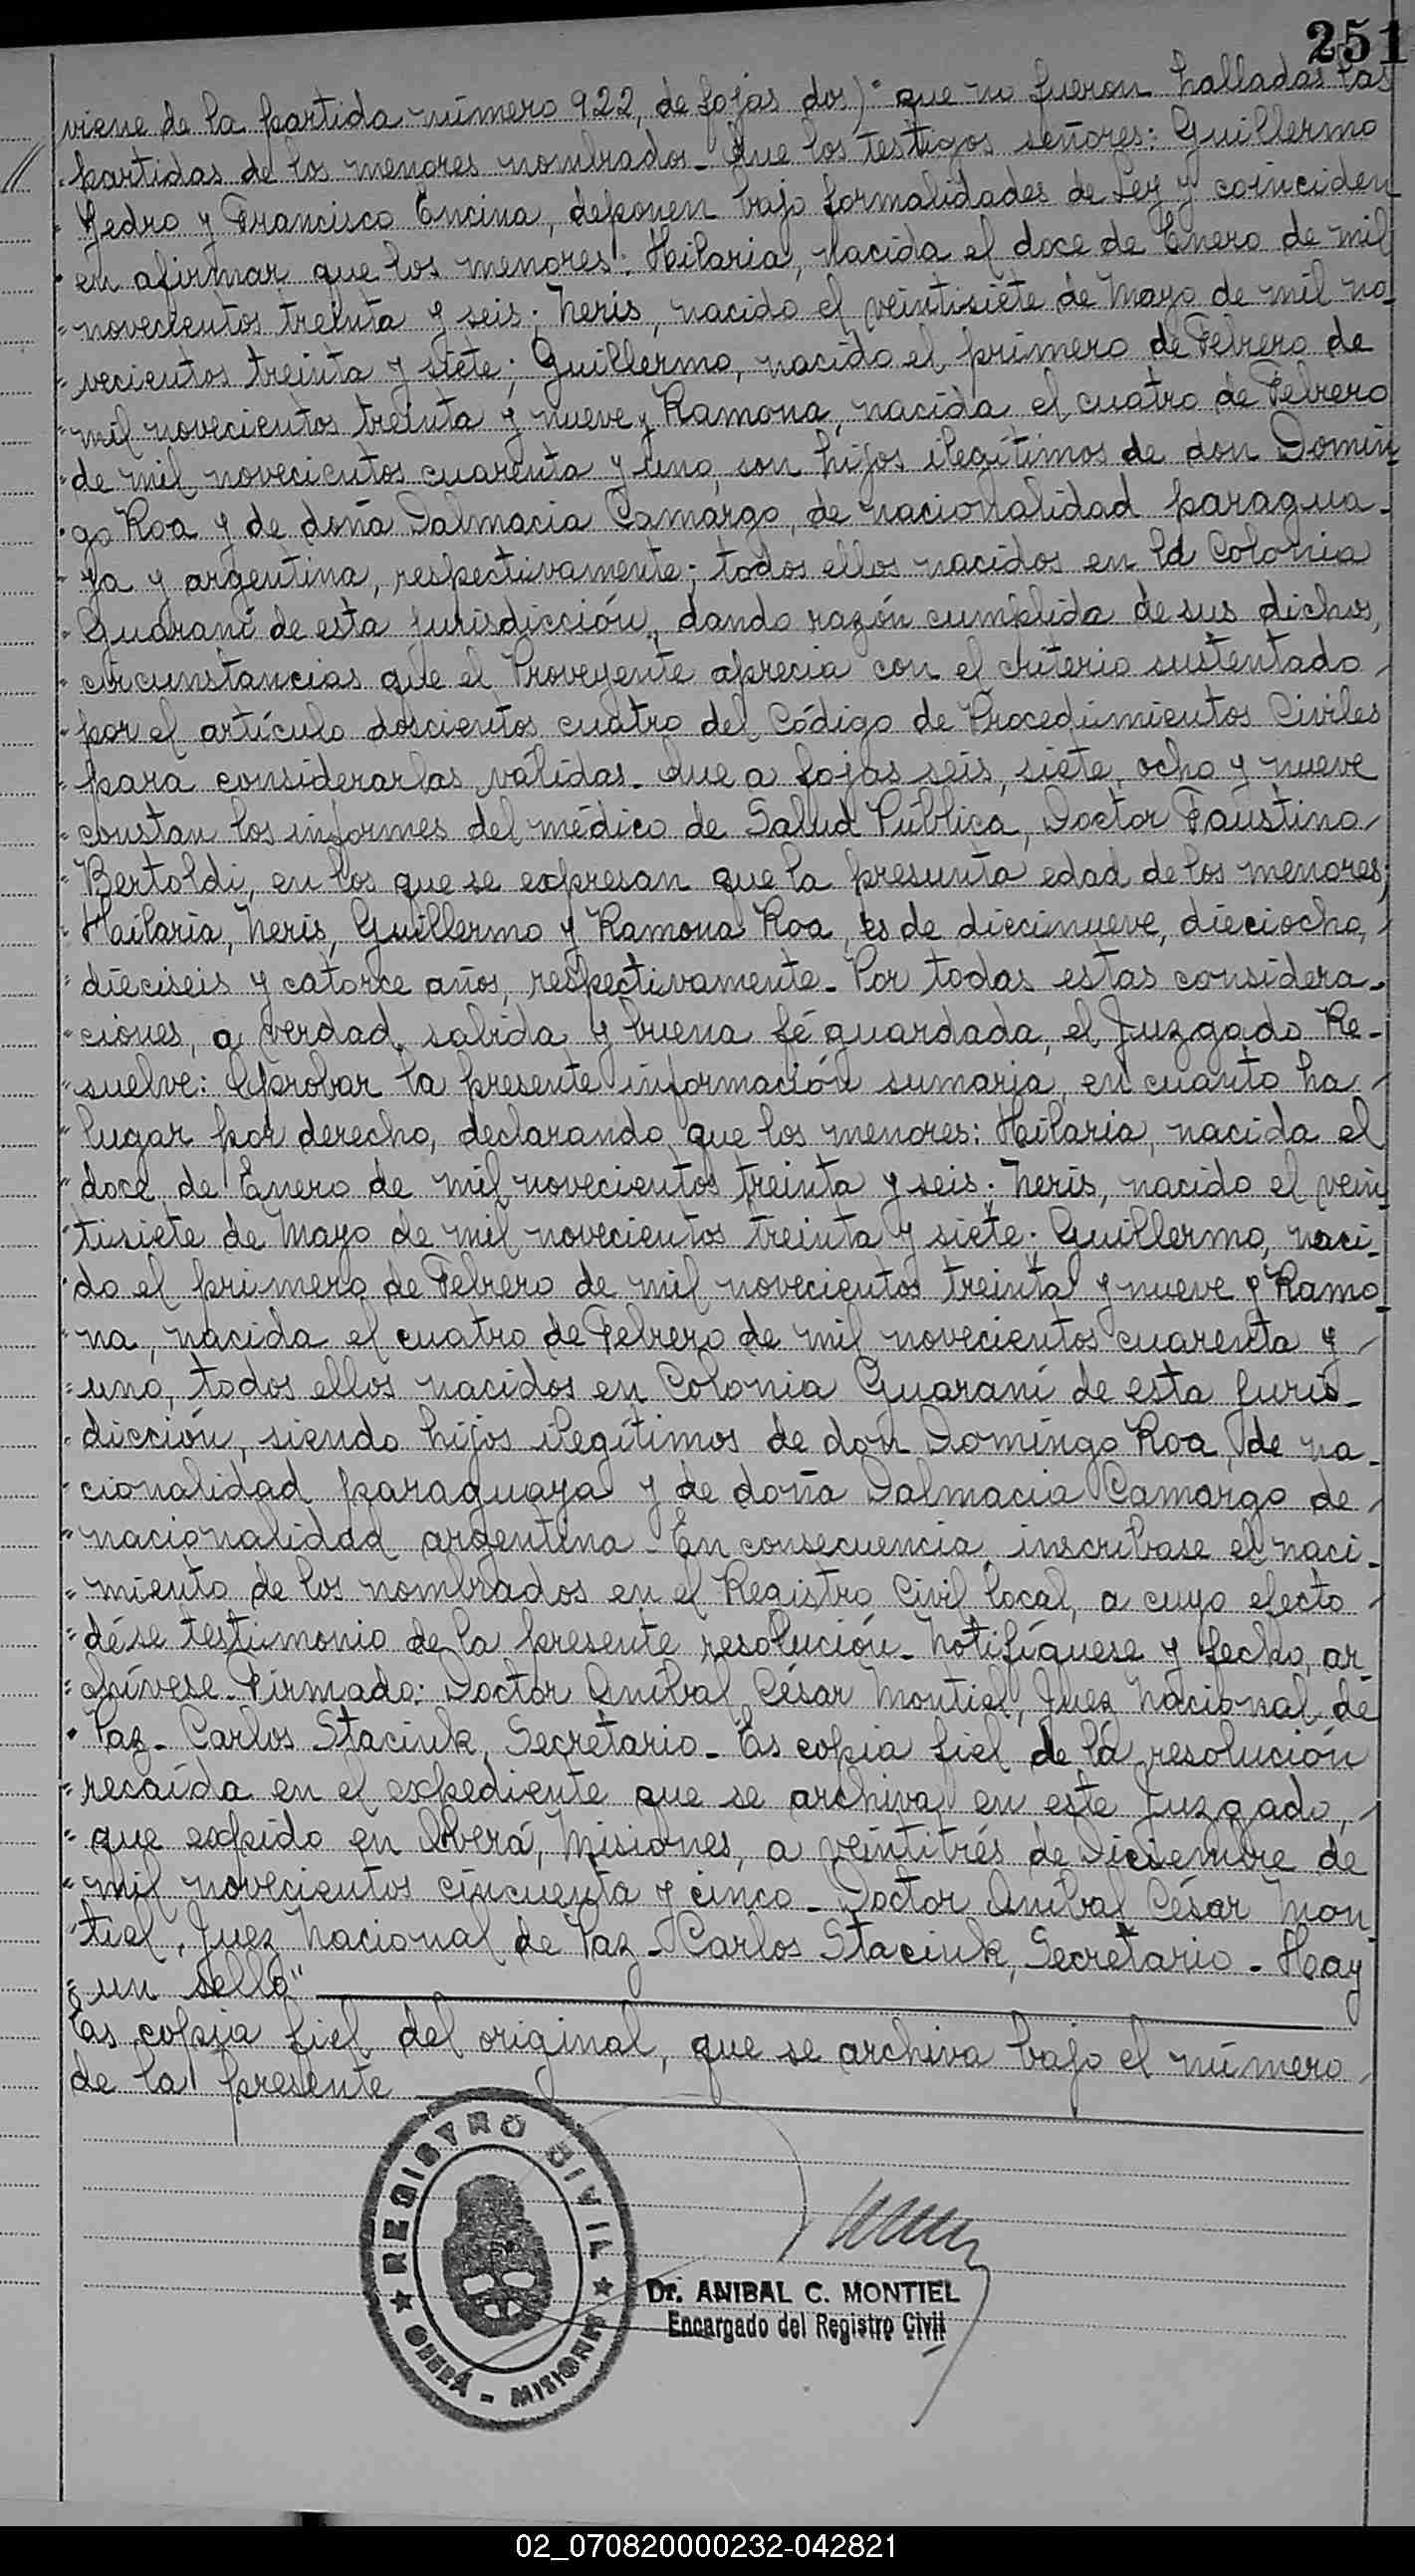 251
viene de la partida número 922, de fojas dos)" que no fueron halladas las
"partidas de los menores nombrados_ Que los testigos señores: Guillermo
" y Francisco Encina, deponen bajo formalidades de Ley y coinciden
"en afirmar que los menores: Hilaria, nacida el doce de Enero de mil
"novecientos treinta y seis; Neris, nacido el veintisiete de Mayo de mil no_
"vecientos treinta y siete; Guillermo, nacido el primero de Febrero de
"mil novecientos treinta y nueve y Ramona, nacida el cuatro de Febrero
"de mil novecientos cuarenta y uno, son hijos ilegítimos de don Domin_
"go Roa y de doña Dalmacia Camargo, de nacionalidad paragua_
"ya y argentina, respectivamente; todos ellos nacidos en la Colonia
"Guaraní de esta jurisdicción, dando razón cumplida de sus dichos,
"circunstancias que el Proveyente aprecia con el criterio sustentado
"por el artículo doscientos cuatro del Código de Procedimientos Civiles
"para considerarlas válidas_ Que a fojas seis, siete, ocho y nueve
"constan los informes del médico de Salud Pública, Doctor Faustino
"Bertoldi, en los que se expresan que la presunta edad de los menores;
"Hilaria, Neris, Guillermo y Ramona Roa, es de diecinueve, dieciocho,
"dieciseis y catorce años, respectivamente_ Por todas estas considera_
"ciones, a verdad sabida y buena fé guardada, el Juzgado Re_
"suelve: Aprobar la presente información sumaria, en cuanto ha
"lugar por derecho, declarando que los menores: Hilaria, nacida el
"doce de Enero de mil novecientos treinta y seis; Neris, nacido el vein_
"tisiete de Mayo de mil novecientos treinta y siete; Guillermo, naci_
"do el primero de Febrero de mil novecientos treinta y nueve y Ramo_
"na, nacida el cuatro de Febrero de mil novecientos cuarenta y
"uno, todos ellos nacidos en Colonia Guaraní de esta juris_
"dicción, siendo hijos ilegítimos de don Domingo Roa, de na_
"cionalidad paraguaya y de doña Dalmacia Camargo de
"nacionalidad argentina_ En consecuencia, inscribase el naci_
"miento de los nombrados en el Registro Civil local, a cuyo efecto
"dése testimonio de la presente resolución_ Notifíquese y fecho, ar_
"chívese_ Firmado: Doctor Aníbal César Montiel, Juez Nacional de
"Paz_ Carlos Staciuk, Secretario_ Es copia fiel de la resolución
"recaída en el expediente que se archiva en este Juzgado,
"que expido en Oberá, Misiones, a veintitrés de Diciembre de
"mil novecientos cincuenta y cinco_ Doctor Aníbal César Mon_
"tiel, Juez Nacional de Paz_ Carlos Staciuk, Secretario_ Hay
"un sello"
Es copia fiel del original, que se archiva bajo el número
de la presente
REGISTRO CIVIL
OBERÁ - MISIONES
Dr. ANIBAL C. MONTIEL
Encargado del Registro Civil
02_070820000232-042821